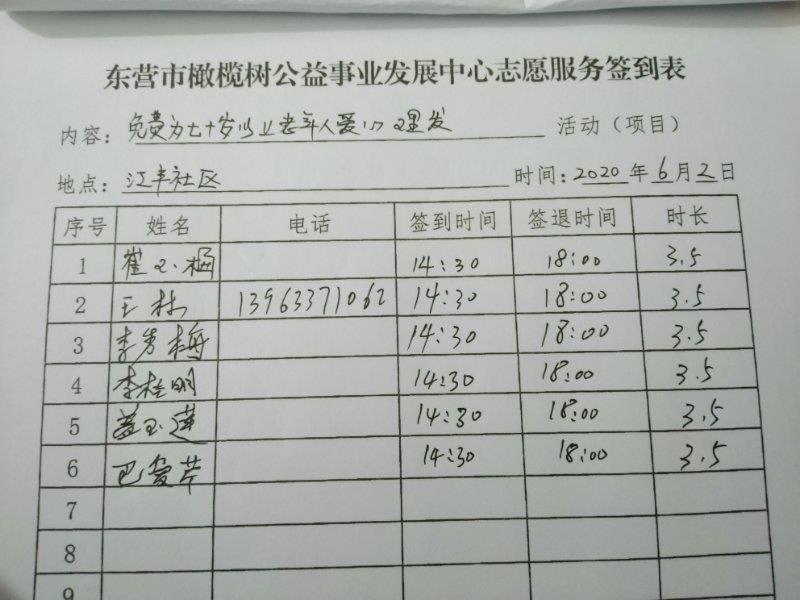 东营市橄榄树公益事业发展中心志愿服务签到表
内容：免费为七十岁以上老年人爱心理发 活动（项目）
地点：江丰社区 时间：2020年6月2日
序号 姓名 电话 签到时间 签退时间 时长
1 崔玉 14:30 18:00 3.5
2 王 13963371062 14:30 18:00 3.5
3 李芳梅 14:30 18:00 3.5
4 李桂明 14:30 18:00 3.5
5 盖玉莲 14:30 18:00 3.5
6 巴爱芹 14:30 18:00 3.5
7
8
9